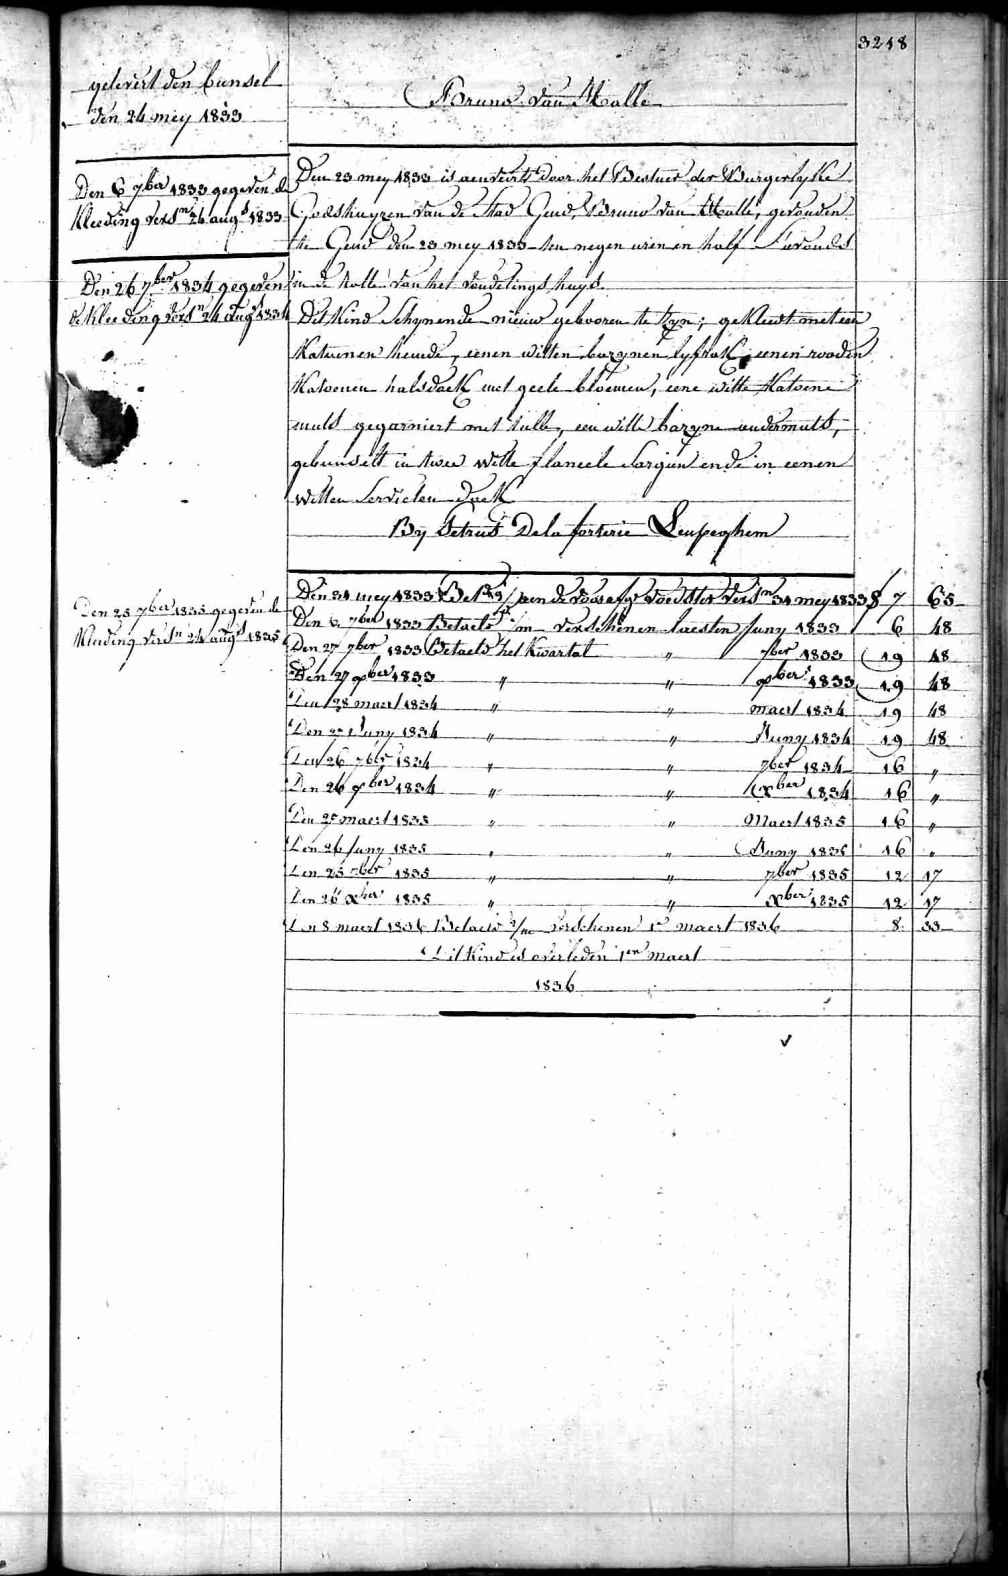 3218
gelevert den bunsel
den 24 mey 1833
Bruno van Halle
Den 6 7ber 1833 gegeven de
Kleeding versn 24 augt 1833
Den 26 7ber 1834 gegeven
de Kleeding versn 24 augt 1834
Den 25 7ber 1835 gegeven de
Kleeding versn 24 augt 1835
Den 23 mey 1833 is aenveirt door het Bestuer der Burgerlyke
Godshuyzen van de stad Gend, Bruno van Halle, gevonden
te Gend den 23 mey 1833 ten negen uren en half s'avonds
in de rolle van het vondelingshuys.
Dit Kind schynende nieuw gebooren te zyn; gekleed met een
Katoenen hemde, eenen witten bazynen lyfrok, eenen rooden
Katoenen halsdoek met geele bloemen, eene witte Katoene
muts gegarniert met tulle, een witte bazyne ondermuts,
gebunselt in twee witte flaneele sargien ende in eenen
witten servietten doek
By Petrus Delafortrie Leupeghem
Den 31 mey 1833 aen de voedster versn 31 mey 1833 f 7 65
Den 6 7ber 1833 Betaelt verschenen laesten Juny 1833 6 48
Den 27 7ber 1833 Betaeld het Kwartal " 7ber 1833 19 48
Den 27 xber 1833 " " xber 1833 19 48
Den 28 maert 1834 " " maert 1834 19 48
Den Juny 1834 " " Juny 1834 19 48
Den 26 7ber 1834 " " 7ber 1834 16 "
Den 26 xber 1834 " " xber 1834 16 "
Den 27 maert 1835 " " Maert 1835 16 "
Den 26 Juny 1835 " " Juny 1835 16 "
Den 25 7ber 1835 " " 7ber 1835 12 17
Den 26 xber 1835 " " xber 1835 12 17
Den 8 maert 1836 Betaeld verschenen 1en maert 1836 8 33
Dit Kind is overleden 1en maert
1836